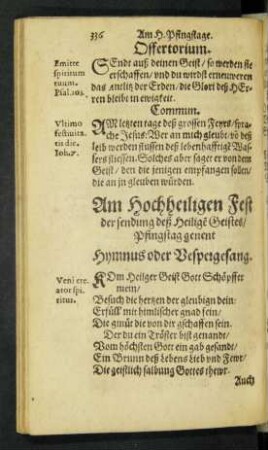 336 Am H. Pfingstage.
Offertorium.
Emitte
spiritum
tuum.
Psal.103.
SEndt auß deinen Geist/ so werden sie
erschaffen/ vnd du wirdst erneuweren
das antlitz der Erden/ die Glori deß HEr-
ren bleibt in ewigkeit.
Commun.
Vltimo
festiuita-
tis die.
Ioh.7.
AM letzten tage deß grossen Feyrs/ spra-
che Jesus: Wer an mich gleubt/ vō deß
leib werden fliessen deß lebenhafftigē Was-
sers fliessen. Solches aber saget er von dem
Geist/ den die jenigen empfangen solen/
die an jn gleiben würden.
Am Hochheiligen Fest
der sendung deß Heiligē Geistes/
Pfingstag genent
Hymnus oder Vespergesang.
Veni cre-
ator spi-
ritus.
KOm Heilger Geist Gott Schöpffer
mein/
Besuch die hertzen der gleubigen dein/
Erfüll mit himlischer gnad fein/
Die gmüt die von dir gschaffen sein.
Der du ein Tröster bist genandt/
Vom höchsten Gott ein gab gesandt/
Ein Brunn deß Lebens Lieb vnd Fewr/
Die geistlich salbung Gottes thewr.
Auch